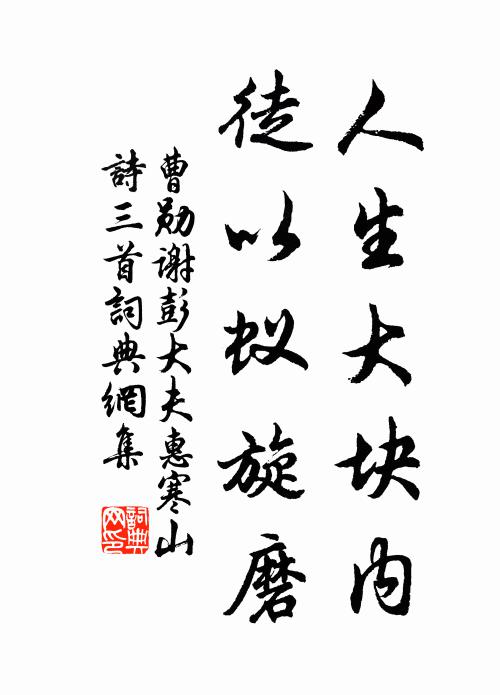 人生大块内
徒以蚁旋磨
曹勋谢彭大夫惠寒山
詩三首詞典網集
詞典
网印